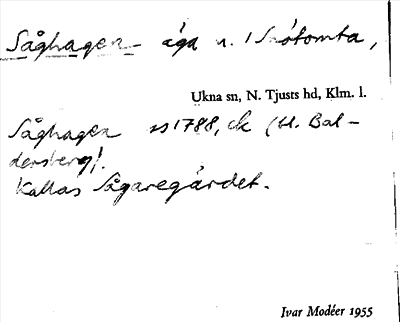 Såghagen äga u. Skötomta,
Ukna sn, N. Tjusts hd, Klm. l.
Såghagen 1788, ck (bl. Bal-
dersberg).
Kallas Sågaregärdet.
Ivar Modéer 1955